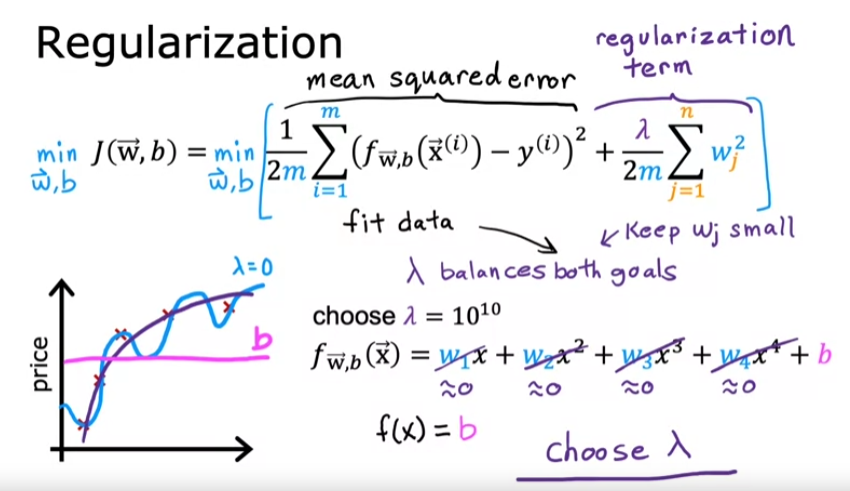 Regularization
mean squared error
regularization term
min w⃗,b J(w⃗,b) = min w⃗,b [ 1/2m ∑ i=1 m (f w⃗,b(x⃗^(i)) − y^(i))^2 + λ/2m ∑ j=1 n w_j^2 ]
fit data
↙ Keep wj small
λ balances both goals
λ=0
b
price
choose λ = 10^10
f w⃗,b(x⃗) = w_1x + w_2x^2 + w_3x^3 + w_4x^4 + b
≈0 ≈0 ≈0 ≈0
f(x) = b
choose λ